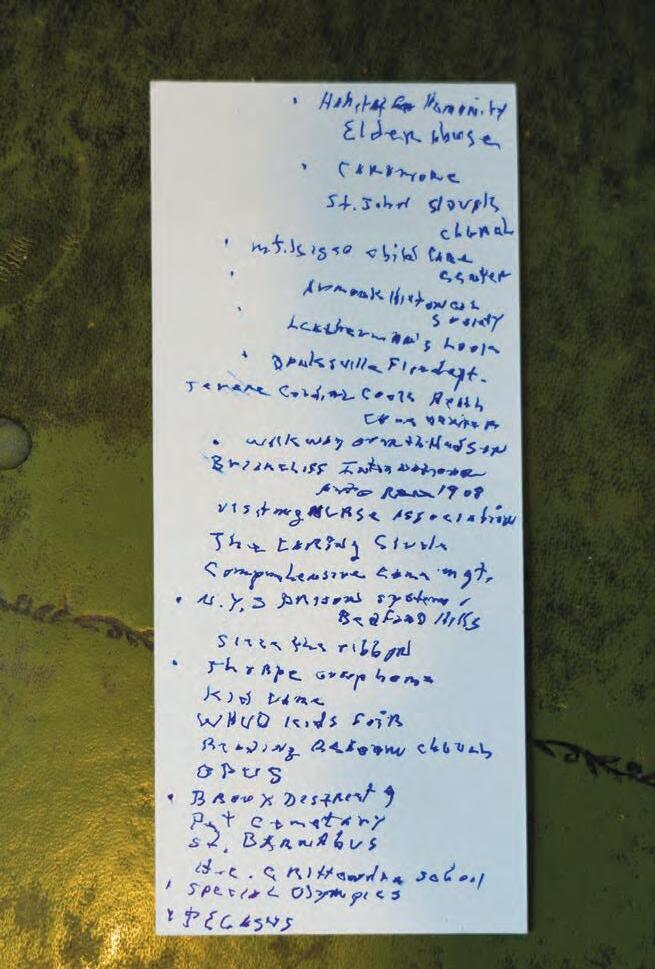 • Habitat for Humanity
Elder Abuse
• Caramoore
St. John
church
• mt. kisco child care
center
• Armonk Historical
Society
• Leatherman's Loop
• Banksville Fire dept.
Terence Cardinal Cooke Health
Care
• Walkway over the Hudson
Briarcliff International
Auto Race 1908
visiting NURSE Association
The Caring Circle
Comprehensive care mgt.
• N.Y.S prison system,
Bedford Hills
the ribbon
• Thorpe group home
Kid
WHUD Kids Fair
church
OPUS
• BRONX District 9
Pet Cemetary
St. BARNABUS
H.C. Crittenden school
• Special Olympics
• PEGASUS